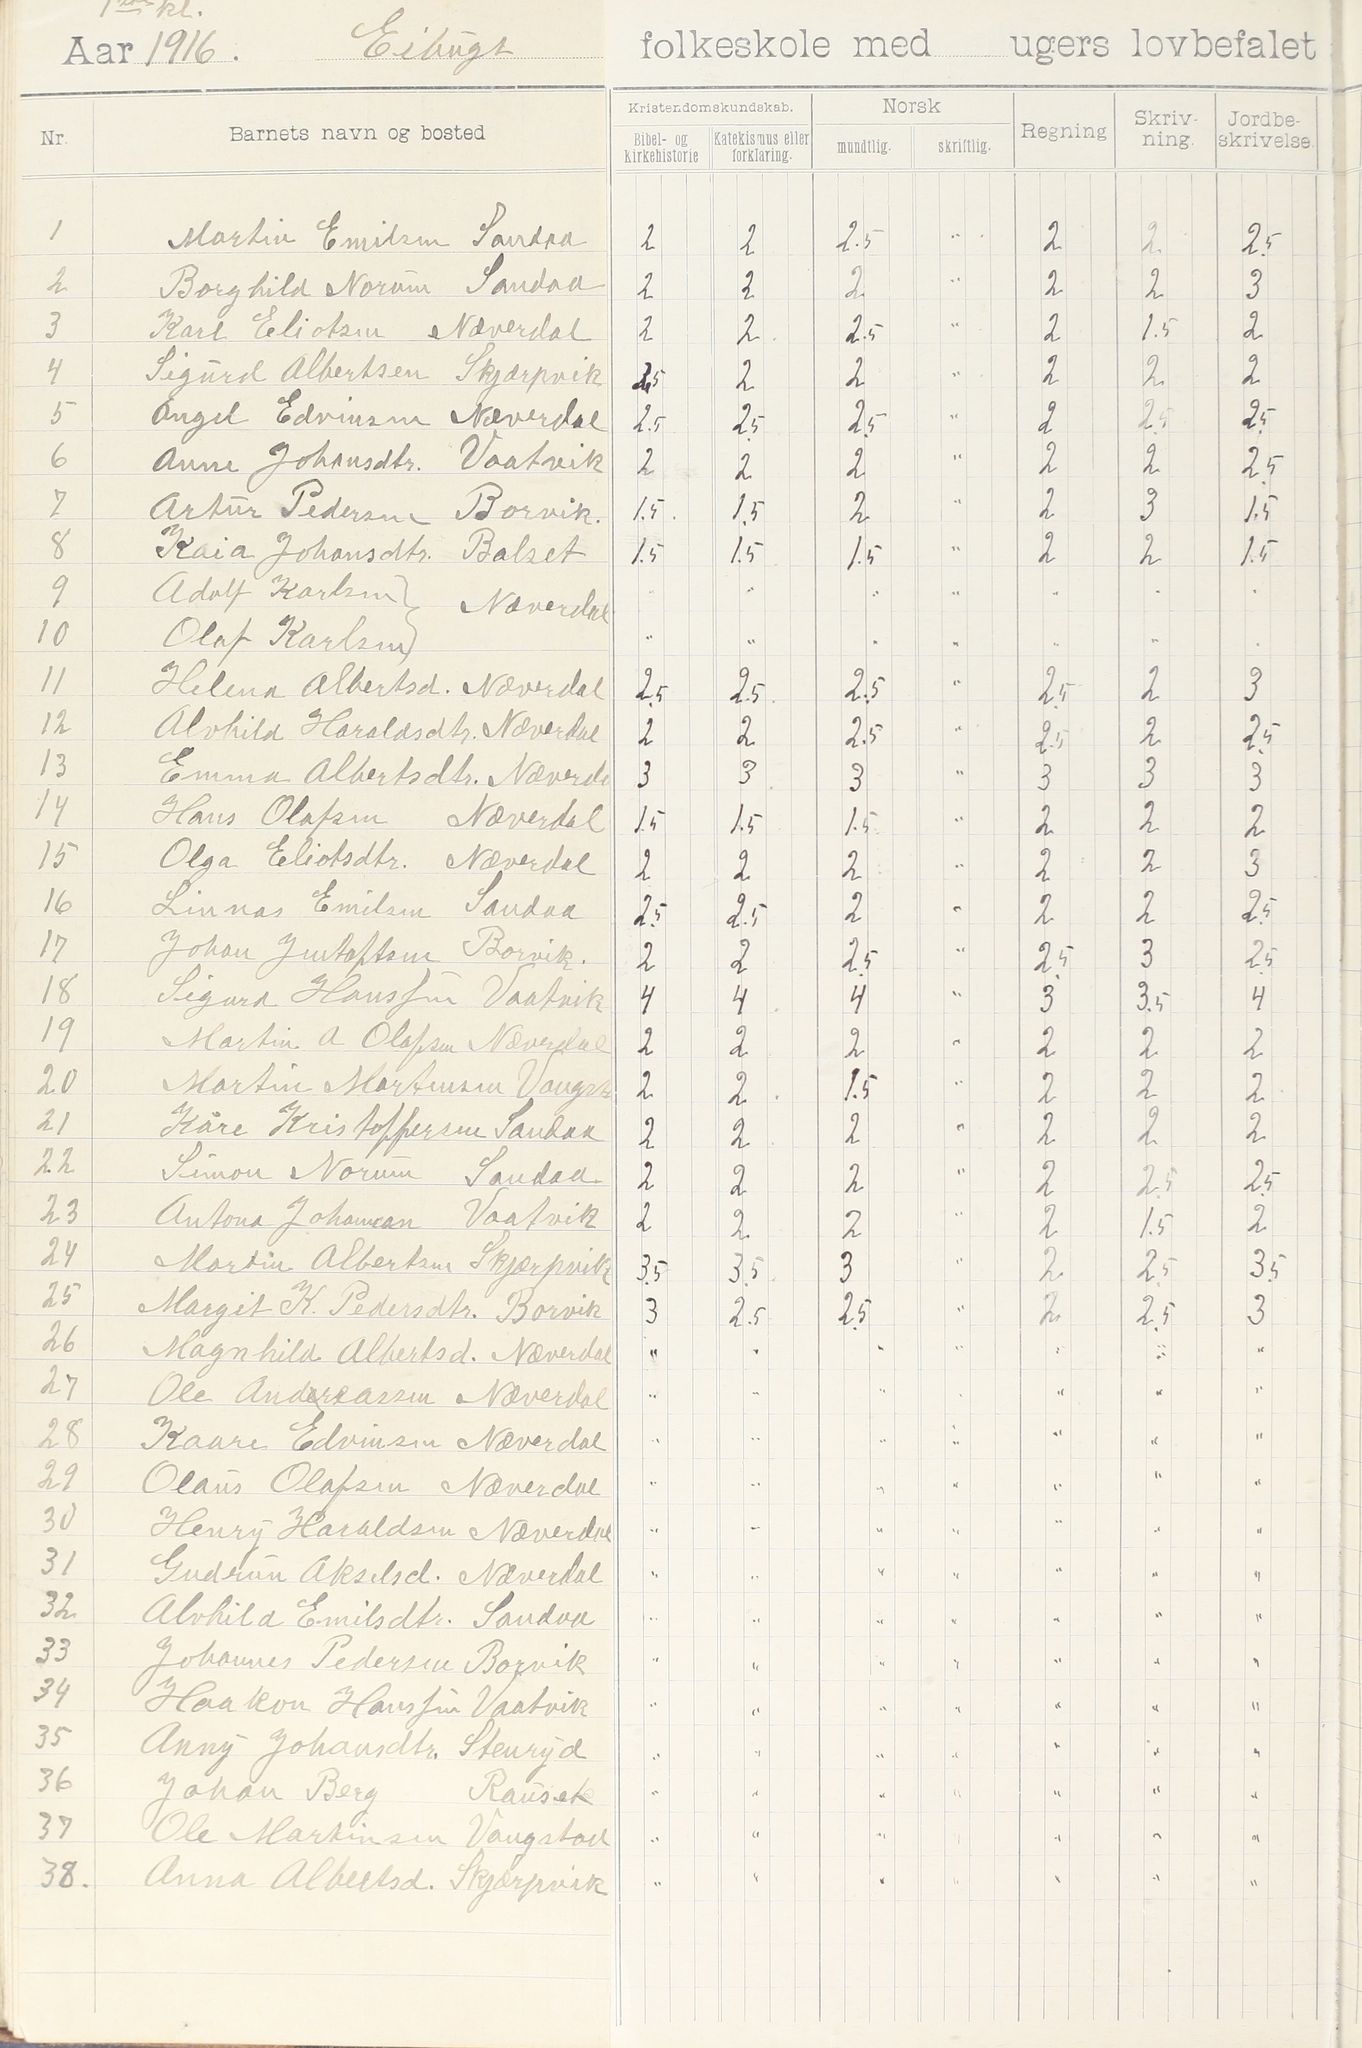 1ste kl.
Aar 1916. Eibugt folkeskole med ugers lovbefalet
Nr. Barnets navn og bosted Kristendomskundskab. Norsk Regning Skriv- Jordbe-
Bibel- og Katekismus eller mundtlig. skriftlig. ning. skrivelse.
kirkehistorie forklaring.
1 Martin Emilsen Sandaa 2 2 2.5 " 2 2 2.5
2 Borghild Norum Sandaa 2 2 2 " 2 2 3
3 Karl Eliotsen Næverdal 2 2 2.5 " 2 1.5 2
4 Sigurd Albertsen Skjærpvik 2 2 " 2 2 2
5 Angel Edvinsen Næverdal 2.5 2.5 2.5 " 2 2.5 2.5
6 Anne Johansdtr. Vaatvik 2 2 2 " 2 2 2.5
7 Artur Pedersen Borvik. 1.5 1.5 2 " 2 3 1.5
8 Kaia Johansdtr. Balset 1.5 1.5 1.5 " 2 2 1.5
9 Adolf Karlsen } Næverdal " " " " " " "
10 Olaf Karlsen } " " " " " " "
11 Helena Albertsd. Næverdal 2.5 2.5 2.5 " 2.5 2 3
12 Alvhild Haraldsdtr. Næverdal 2 2 2.5 " 2.5 2 2.5
13 Emma Albertsdtr. Næverda 3 3 3 " 3 3 3
14 Hans Olafsen Næverdal 1.5 1.5 1.5 " 2 2 2
15 Olga Eliotsdtr. Næverdal 2 2 2 " 2 2 3
16 Linnas Emilsen Sandaa 2.5 2.5 2 " 2 2 2.5
17 Johan Gustafsen Borvik. 2 2 2.5 " 2.5 3 2.5
18 Sigurd Hanssen Vaatvik 4 4 4 " 3 3.5 4
19 Martin A Olafsen Næverdal 2 2 2 " 2 2 2
20 Martin Martinsen Vangst 2 2 1.5 " 2 2 2
21 Kåre Kristoffersen Sandaa 2 2 2 " 2 2 2
22 Simon Norum Sandaa 2 2 2 " 2 2.5 2.5
23 Antona Johansan Vaatvik 2 2 2 " 2 1.5 2
24 Martin Albertsen Skjærpvik 3.5 3.5 3 " 2 2.5 3.5
25 Margit K. Pedersdtr. Borvik 3 2.5 2.5 " 2 2.5 3
26 Magnhild Albertsd. Næverdal " " " " " " "
27 Ole Andreassen Næverdal " " " " " " "
28 Kaare Edvinsen Næverdal " " " " " " "
29 Olaus Olafsen Næverdal " " " " " " "
30 Henry Haraldsen Næverdal " " " " " " "
31 Gudrun Akselsd. Næverdal " " " " " " "
32 Alvhild Emilsdtr. Sandaa " " " " " " "
33 Johannes Pedersen Borvik " " " " " " "
34 Haakon Hanssen Vaatvik " " " " " " "
35 Anny Johansdtr. Stenryd " " " " " " "
36 Johan Berg Rauset " " " " " " "
37 Ole Martinsen Vangstad " " " " " " "
38. Anna Albertsd. Skjærpvik " " " " " " "